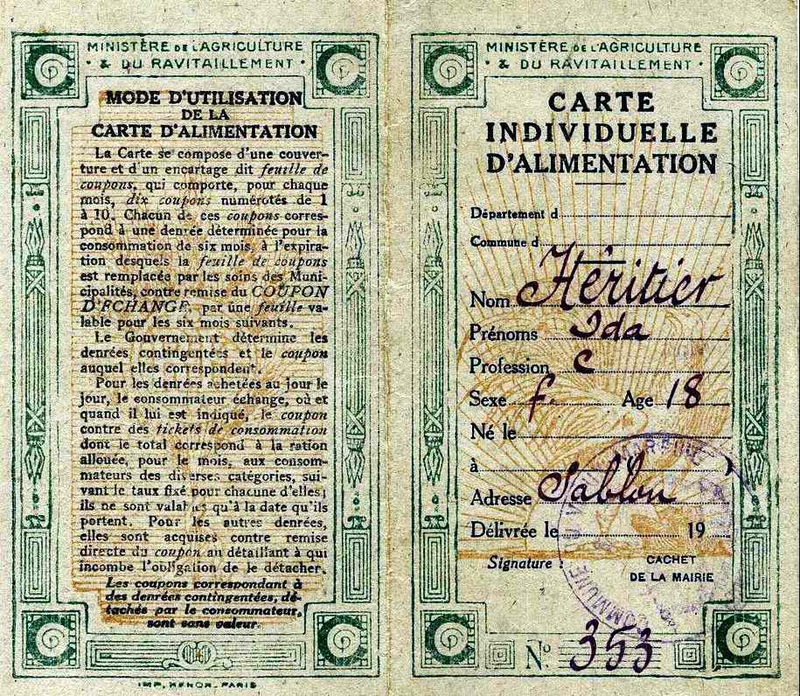 MINISTÈRE DE L'AGRICULTURE
& DU RAVITAILLEMENT
MODE D'UTILISATION
DE LA
CARTE D'ALIMENTATION
La Carte se compose d'une couver-
ture et d'un encartage dit feuille de
coupons, qui comporte, pour chaque
mois, dix coupons numérotés de 1
à 10. Chacun de ces coupons corres-
pond à une denrée déterminée pour la
consommation de six mois, à l'expira-
tion desquels la feuille de coupons
est remplacée par les soins des Muni-
cipalités, contre remise du COUPON
D'ÉCHANGE, par une feuille va-
lable pour les six mois suivants.
Le Gouvernement détermine les
denrées contingentées et le coupon
auquel elles correspondent.
Pour les denrées achetées au jour le
jour, le consommateur échange, où et
quand il lui est indiqué, le coupon
contre des tickets de consommation
dont le total correspond à la ration
allouée, pour le mois, aux consom-
mateurs des diverses catégories, sui-
vant le taux fixé pour chacune d'elles;
ils ne sont valables qu'à la date qu'ils
portent. Pour les autres denrées,
elles sont acquises contre remise
directe du coupon au détaillant à qui
incombe l'obligation de le détacher.
Les coupons correspondant à
des denrées contingentées, dé-
tachés par le consommateur,
sont sans valeur.
IMP. PARIS
MINISTÈRE DE L'AGRICULTURE
& DU RAVITAILLEMENT
CARTE
INDIVIDUELLE
D'ALIMENTATION
Département d
Commune d
Nom Héritier
Prénoms Ida
Profession C
Sexe f. Age 18
Né le
à
Adresse Sablon
Délivrée le 19
Signature :
CACHET
DE LA MAIRIE
COMMUNE
N° 353